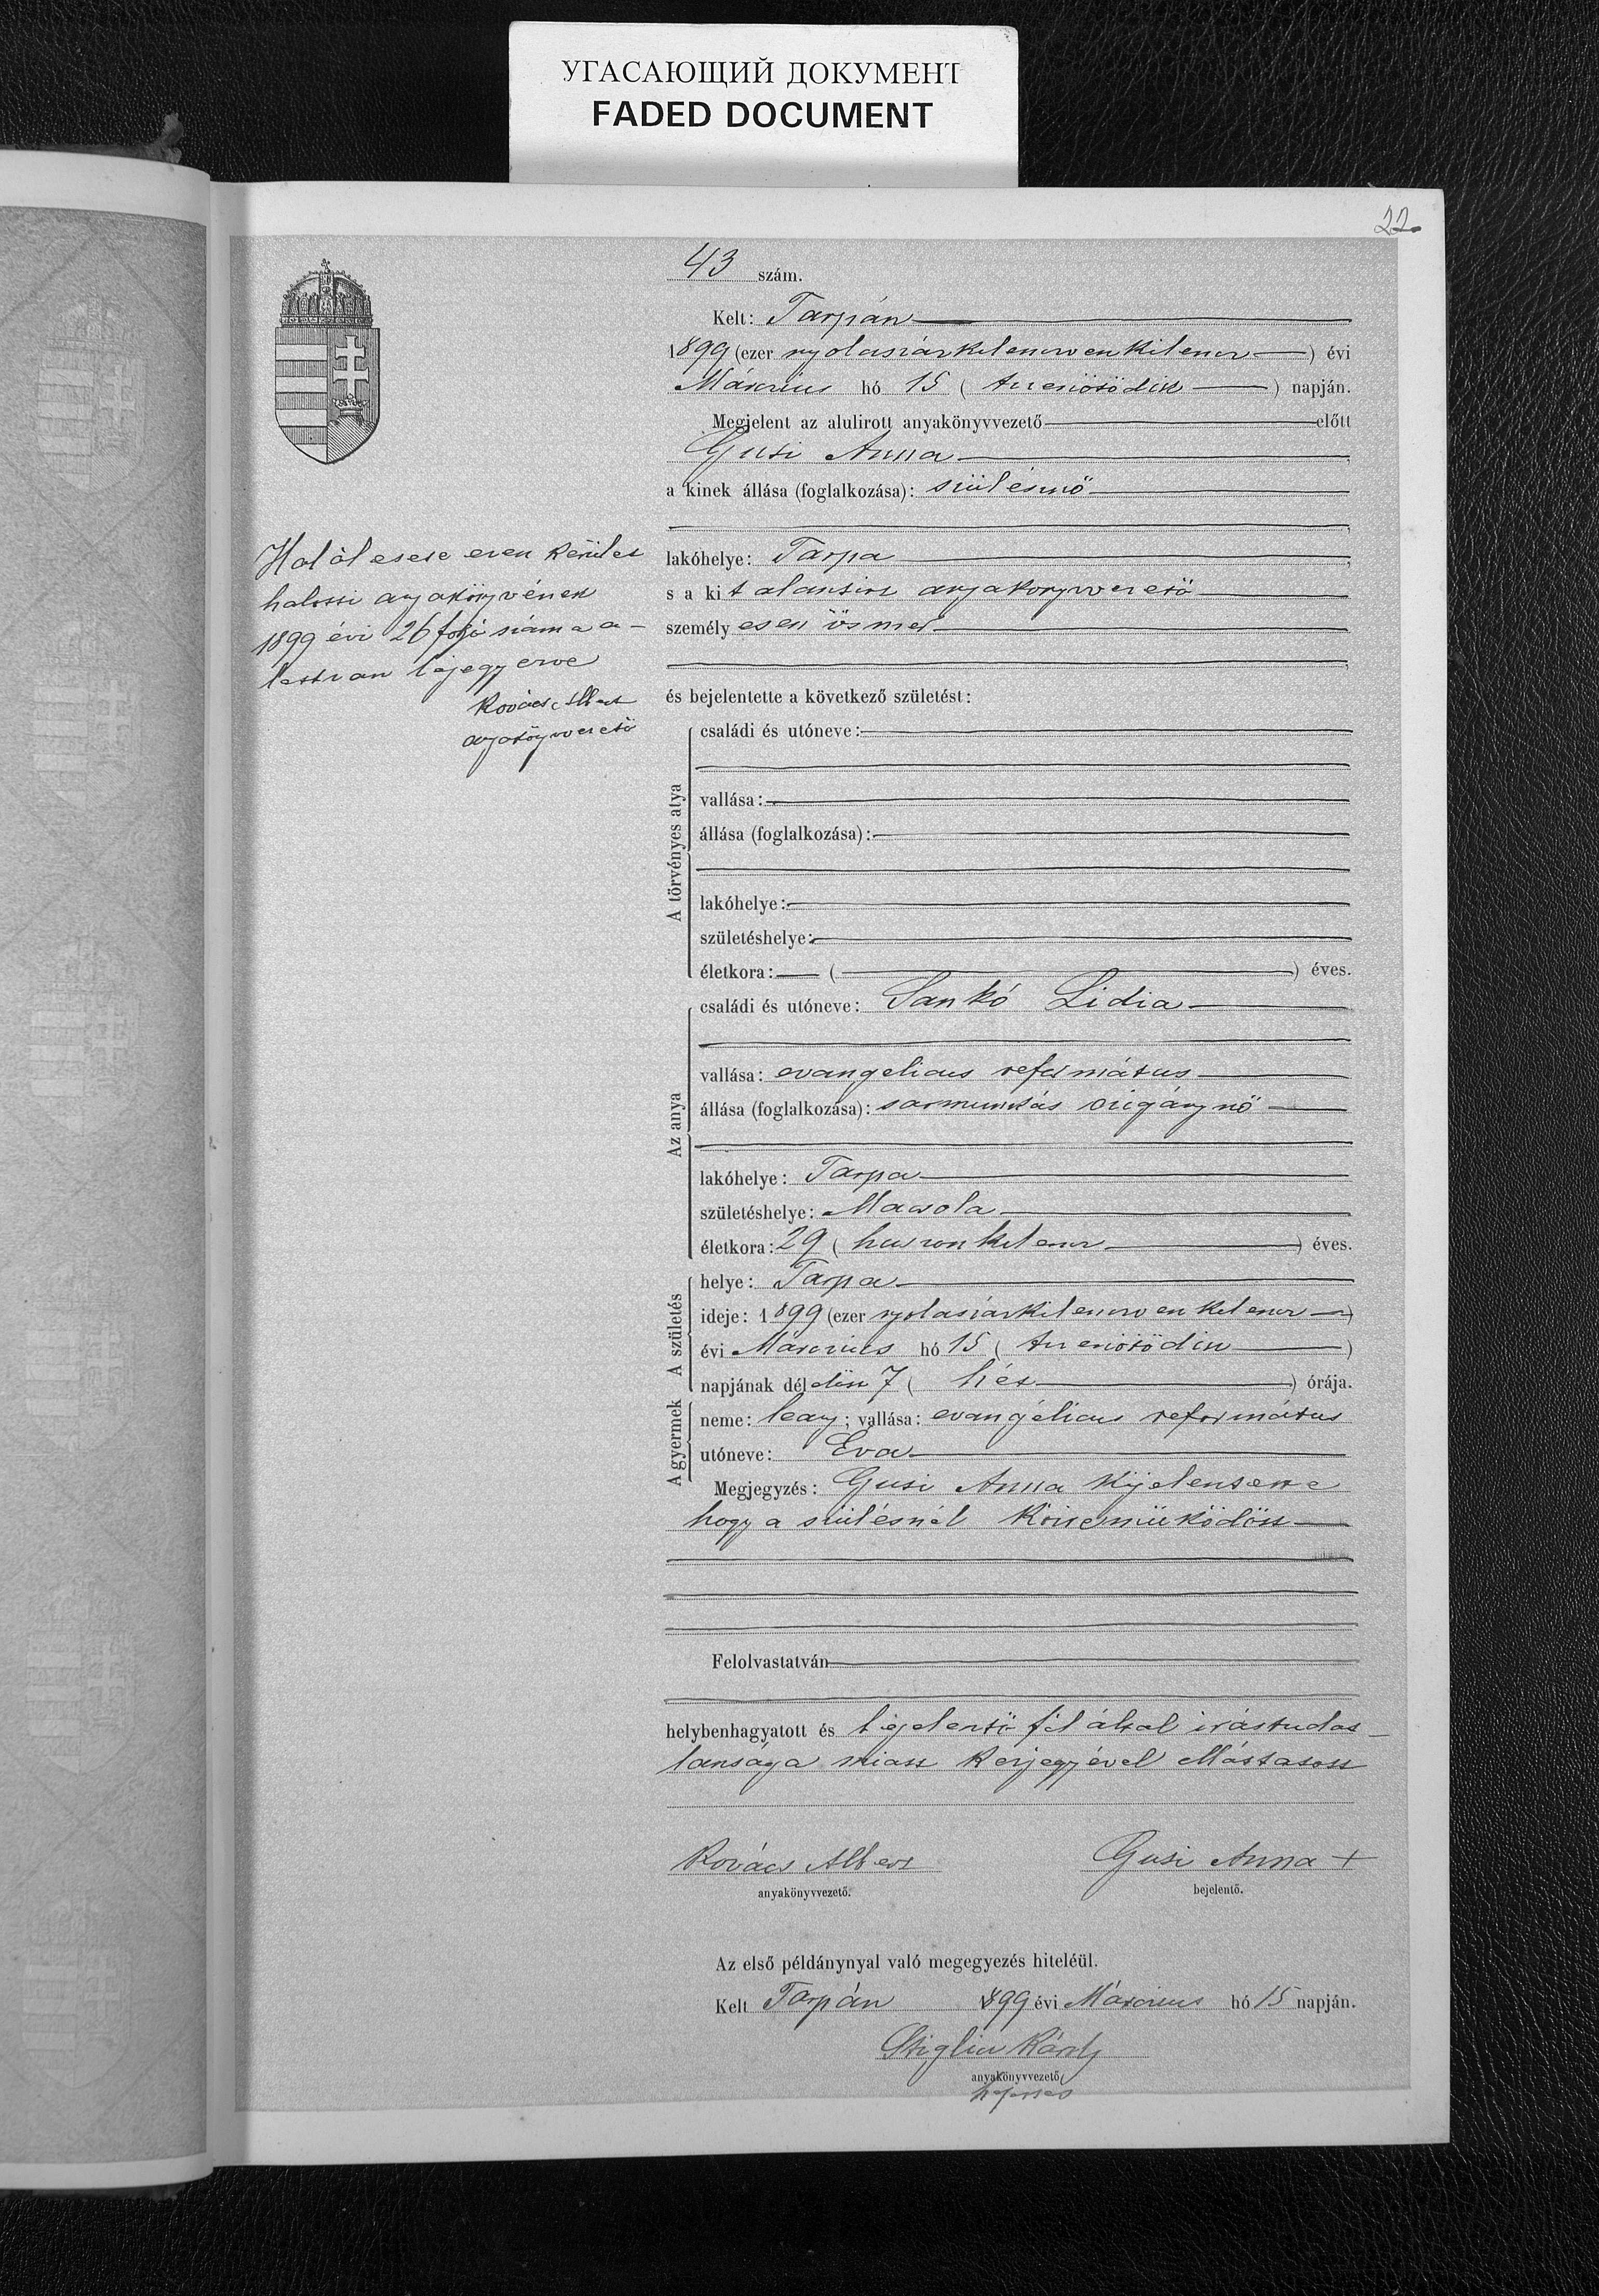 УГАСАЮЩИЙ ДОКУМЕНТ
FADED DOCUMENT
22
43 szám.
Kelt: Tarpán
1899 (ezer nyolcszázkilencvenkilencz) évi
Március hó 15 (tizenötödik) napján.
Megjelent az alulirott anyakönyvvezető előtt
Gusi Anna
a kinek állása (foglalkozása): szülésznő
lakóhelye: Tarpa
s a kit alantirt anyakönyvvezető
személyesen ösmer
és bejelentette a következő születést:
A törvényes atya
családi és utóneve:
vallása:
állása (foglalkozása):
lakóhelye:
születéshelye:
életkora: ( ) éves.
Az anya
családi és utóneve: Sankó Lidia
vallása: evangelicus református
állása (foglalkozása): sármunkás czigánynő
lakóhelye: Tarpa
születéshelye: Macsola
életkora: 29 (huszonkilencz) éves.
A születés
helye: Tarpa
ideje: 1899 (ezer nyolcszázkilenczvenkilencz)
évi Március hó 15 (tizenötödik)
napjának délelőtt 7 (hét) órája.
A gyermek
neme: leány; vallása: evangélicus református
utóneve: Eva
Megjegyzés: Gusi Anna kijelentette
hogy a szülésnél közreműködött
Felolvastatván
helybenhagyatott és bejelentő fél által irástudat-
lansága miatt kézjegyével elláttatott
Kovács Albert
anyakönyvvezető.
Gusi Anna +
bejelentő.
Az első példánynyal való megegyezés hiteléül.
Kelt Tarpán 1899 évi Március hó 15 napján.
Stiglicz Károly
anyakönyvvezető
helyettes
Halál esete ezen kerület
halotti anyakönyvének
1899 évi 26 folyó száma a-
latt van bejegyezve
Kovács Albert
anyakönyvvezető